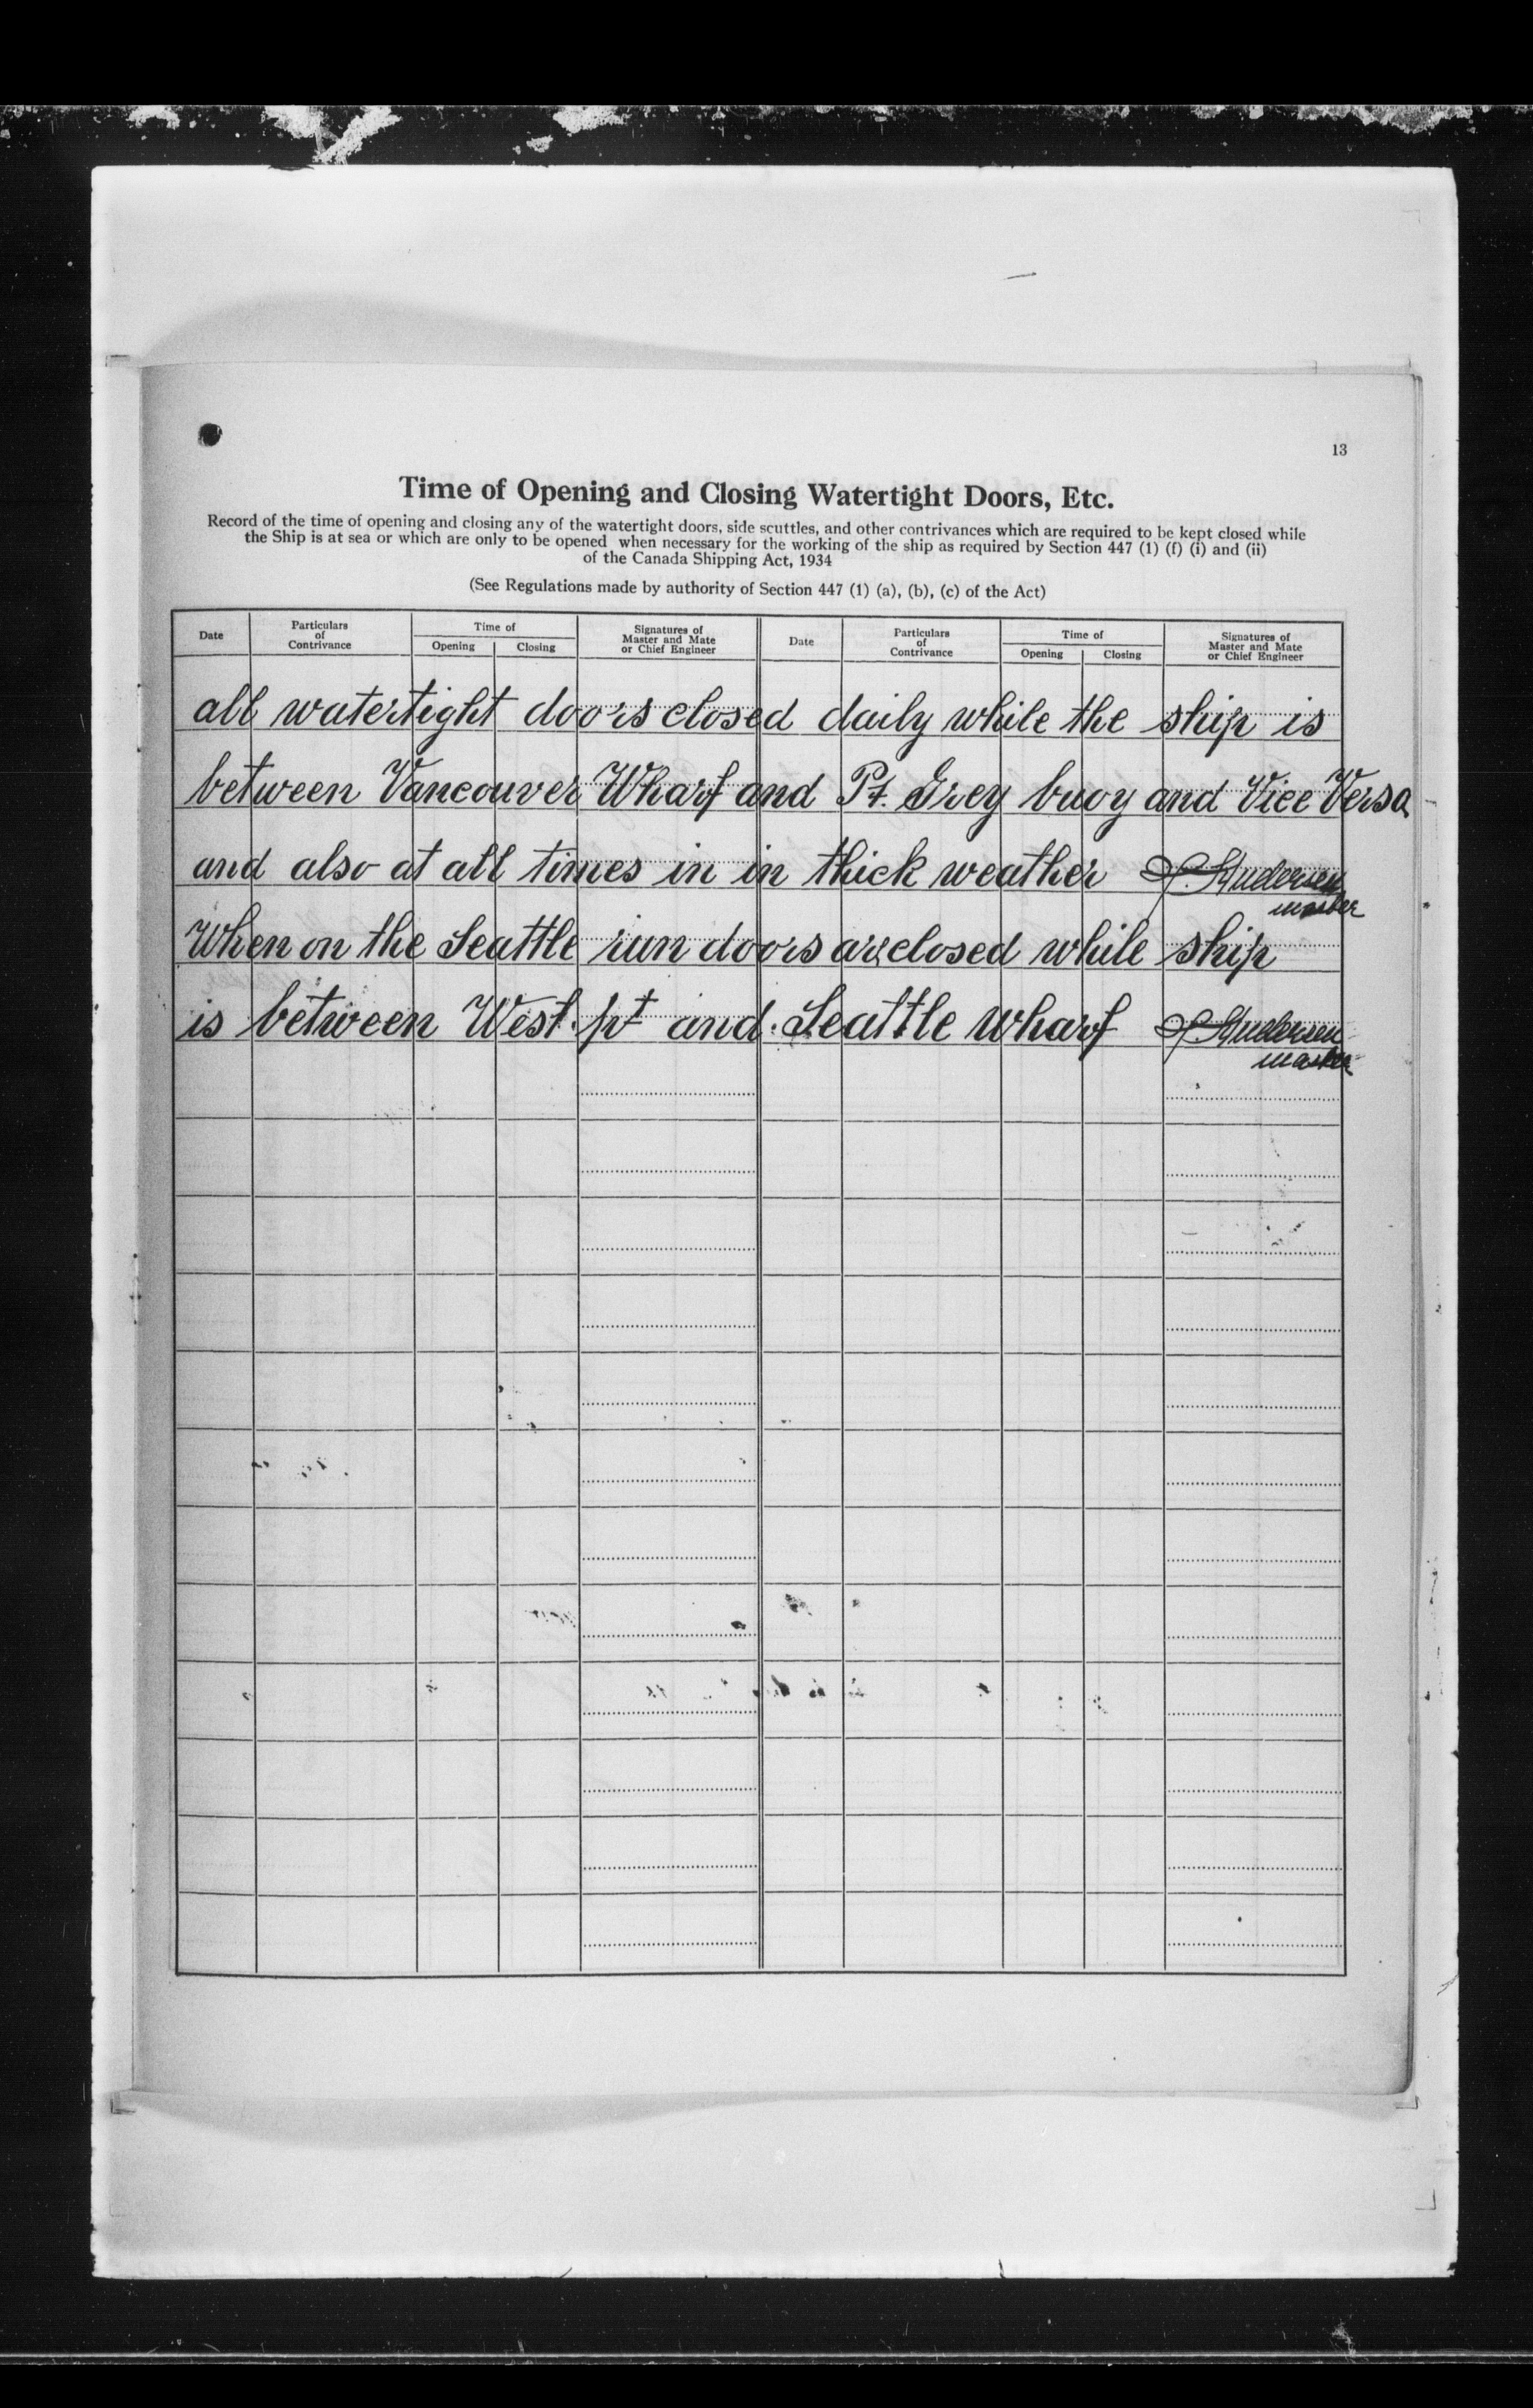 13
Time of Opening and Closing Watertight Doors, Etc.
Record of the time of opening and closing any of the watertight doors, side scuttles, and other contrivances which are required to be kept closed while
the Ship is at sea or which are only to be opened when necessary for the working of the ship as required by Section 447 (1) (f) (i) and (ii)
of the Canada Shipping Act, 1934
(See Regulations made by authority of Section 447 (1) (a), (b), (c) of the Act)
Date Particulars of Contrivance Time of Opening Closing Signatures of Master and Mate or Chief Engineer Date Particulars of Contrivance Time of Opening Closing Signatures of Master and Mate or Chief Engineer
all watertight doors closed daily while the ship is
between Vancouver Wharf and Pt. Grey buoy and Vice Versa
and also at all times in in thick weather Andersen
master
When on the Seattle run doors are closed while ship
is between West. pt and. Seattle Wharf Andersen
master